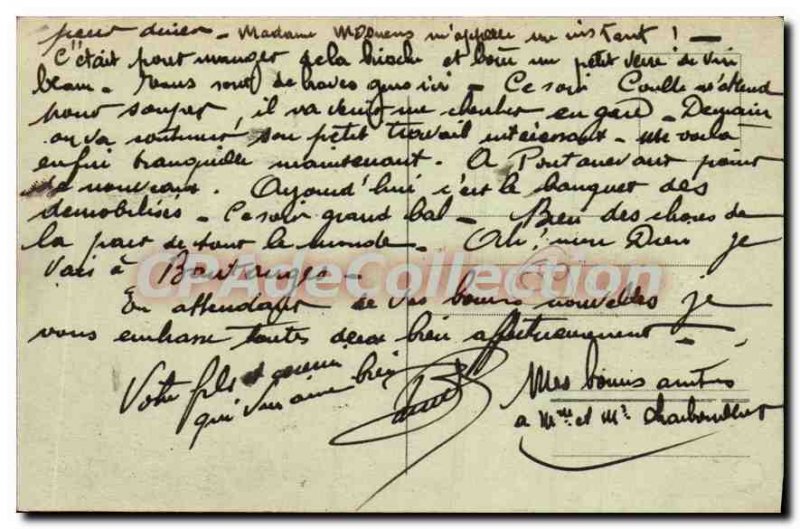 pour diner - Madame m'appelle un instant ! -
C'était pour manger de la brioche et boire un petit verre de vin
blanc. Vous êtes de braves gens ici - Ce soir m'attend
pour souper, il va venir me chercher en gare - Demain
on va continuer son petit travail intéressant - me voilà
enfin tranquille maintenant. A Pontanevaux point
de nouveau. Aujourd'hui c'est le banquet des
démobilisés - Ce soir grand bal - Bien des choses de
la part de tout le monde - Oh ! mon Dieu je
vais à
En attendant de vos bonnes nouvelles je
vous embrasse toutes deux bien affectueusement -
Votre fils et cousin
qui vous aime bien
Mes bonnes amitiés
a Mme et Mr
CPAdeCollection